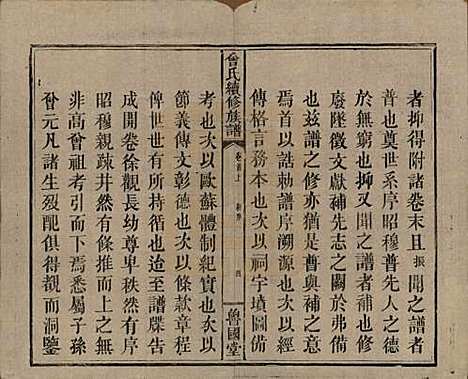 者抑得附諸卷末且振聞之譜者
普也奠世系序昭穆普先人之德
於無窮也抑又聞之譜者補也修
廢墜徵文獻補先志之闕於弗備
也玆譜之修亦猶是普與補之意
焉首以誥敕譜序溯源也次以經
傳格言務本也次以祠宇墳圖備
曾氏續修族譜
卷首上
新序
四
魯國堂
考也次以歐蘇體制紀實也次以
節義傳文彰德也次以條款章程
俾世知所恪遵也迨至譜牒告
成開卷徐觀長幼尊卑秩然有序
昭穆親疎井然有條推而上焉雖
非高曾祖考儼而下焉悉屬子孫
曾元凡諸生歿配俱得覩而洞鑒